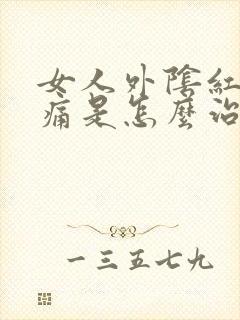 女人外陰紅
痛是怎麼治
一三五七九